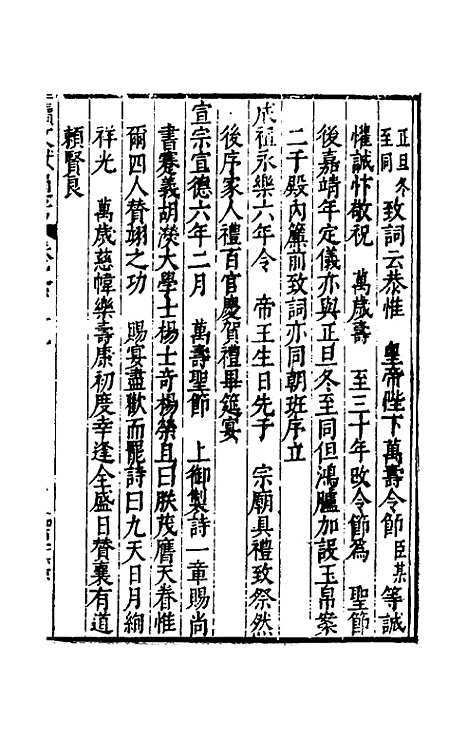 正旦冬至同致詞云恭惟　皇帝陛下萬壽令節臣某等誠
懽誠忭敬祝　萬歲壽　至三十年改令節爲　聖節
後嘉靖年定儀亦與正旦冬至同但鴻臚加設玉帛案
二于殿內簾前致詞亦同朝班序立
成祖永樂六年令　帝王生日先于　宗廟具禮致祭然
後序家人禮百官慶賀禮畢筵宴
宣宗宣德六年二月　萬壽聖節　上御製詩一章賜尚
書蹇義胡濙大學士楊士奇楊榮且曰朕茂膺天眷惟
爾四人贊翊之功　賜宴盡歡而罷詩曰九天日月絢
祥光　萬歲慈幃樂壽康初度幸逢全盛日贊襄有道
頼賢良